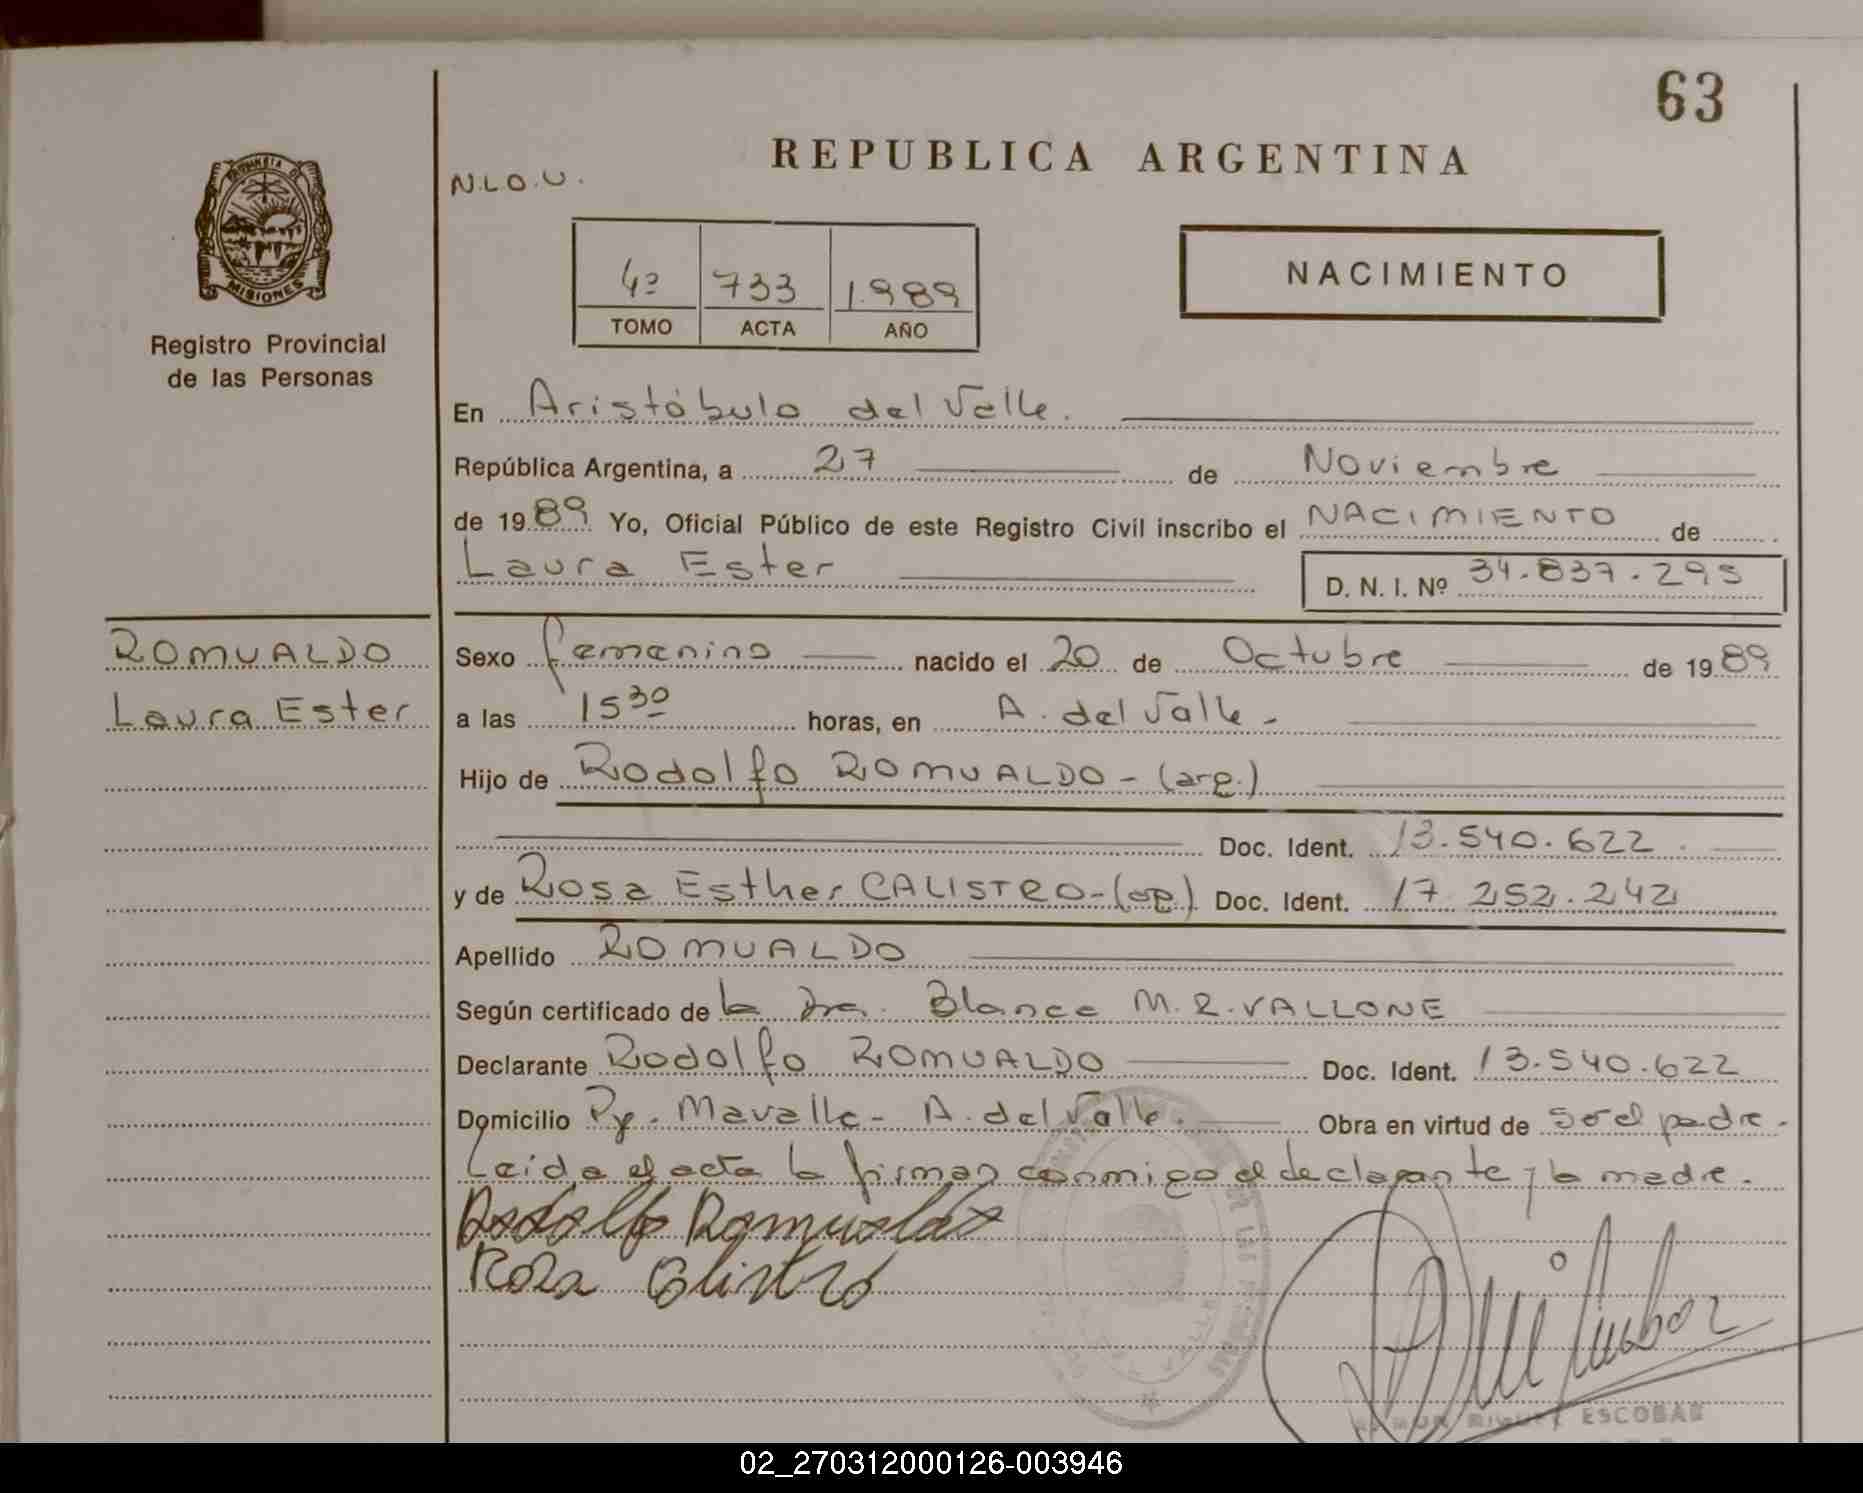 63
REPUBLICA ARGENTINA
N.L.O.U.
NACIMIENTO
4º 733 1.989
TOMO ACTA AÑO
MISIONES
Registro Provincial
de las Personas
En Aristóbulo del Valle.
República Argentina, a 27 de Noviembre
de 1989 Yo, Oficial Público de este Registro Civil inscribo el NACIMIENTO de
Laura Ester D. N. I. Nº 34.837.295
ROMUALDO
Laura Ester
Sexo femenino nacido el 20 de Octubre de 1989
a las 15 30 horas, en A. del Valle -
Hijo de Rodolfo ROMUALDO - (arg.)
Doc. Ident. 13.540.622.
y de Rosa Esther CALISTRO - (arg.) Doc. Ident. 17.252.242
Apellido ROMUALDO
Según certificado de la Dra. Blanca M. R. VALLONE
Declarante Rodolfo ROMUALDO Doc. Ident. 13.540.622
Domicilio Py. Mavalle - A. del Valle. Obra en virtud de ser el padre.
Leída el acta la firman conmigo el declarante y la madre.
Rodolfo Romualdo
Rosa Calistro
ESCOBAR
02_270312000126-003946